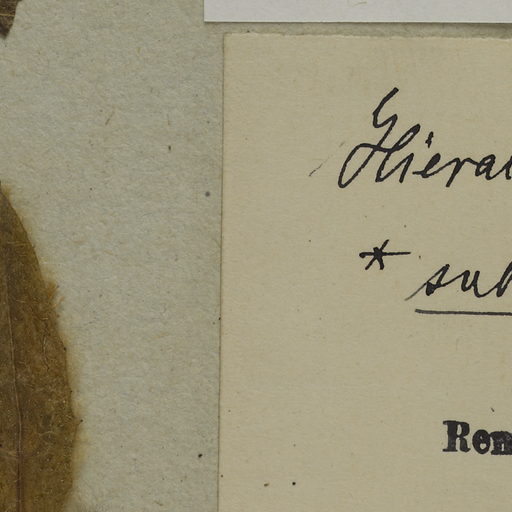 Hiera
* sub
Ren